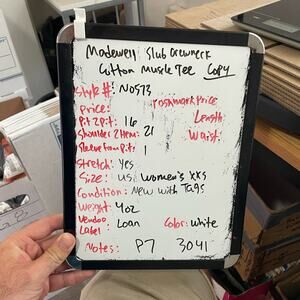 Madewell Slub Crewneck
Cotton Muscle Tee Copy
Style #: N0573
Price: Poshmark Price
Pit 2 Pit: 16 Length:
Shoulder 2 Hem: 21 Waist:
Sleeve from Pit: 1
Stretch: Yes
Size: US Women's XXS
Condition: New with Tags
Weight: 4oz
Vendoo Label Loan Color: White
Notes: P7 3041